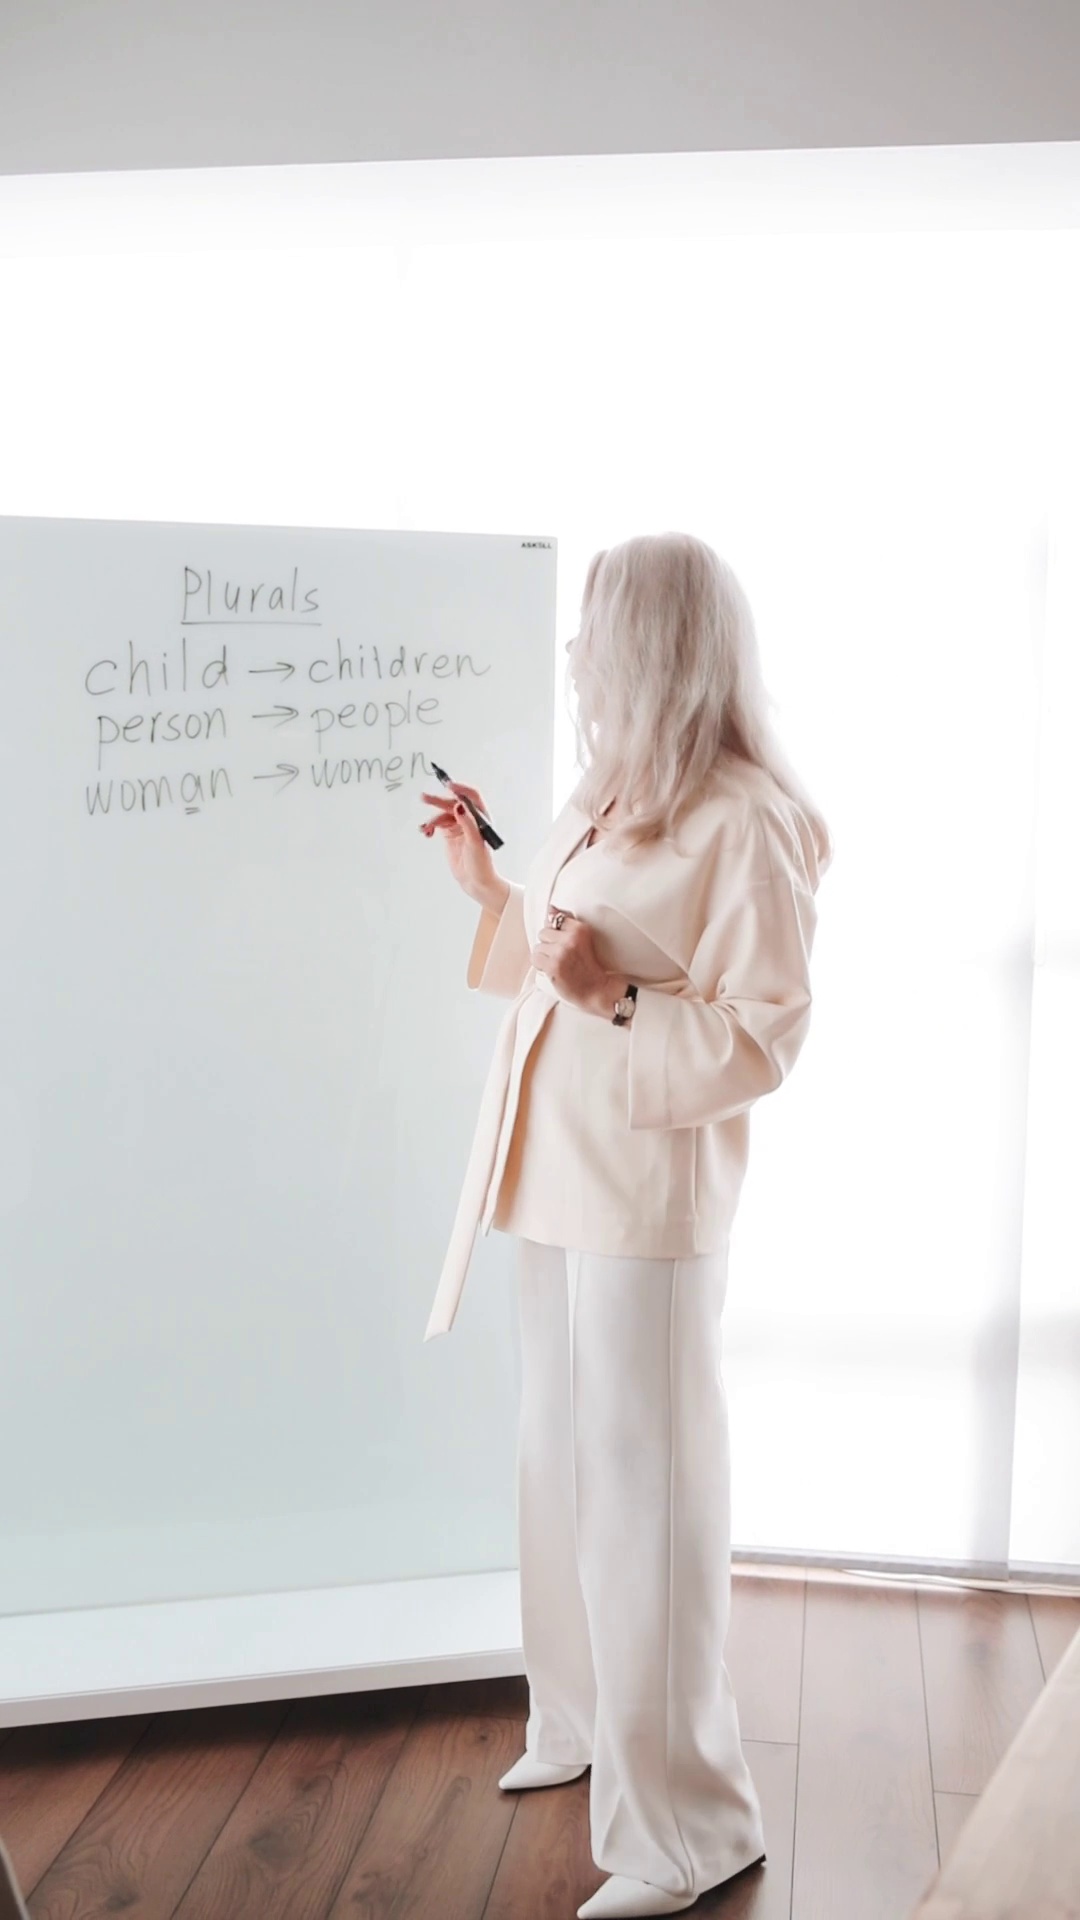 ASKELL
Plurals
child → children
person → people
woman → women